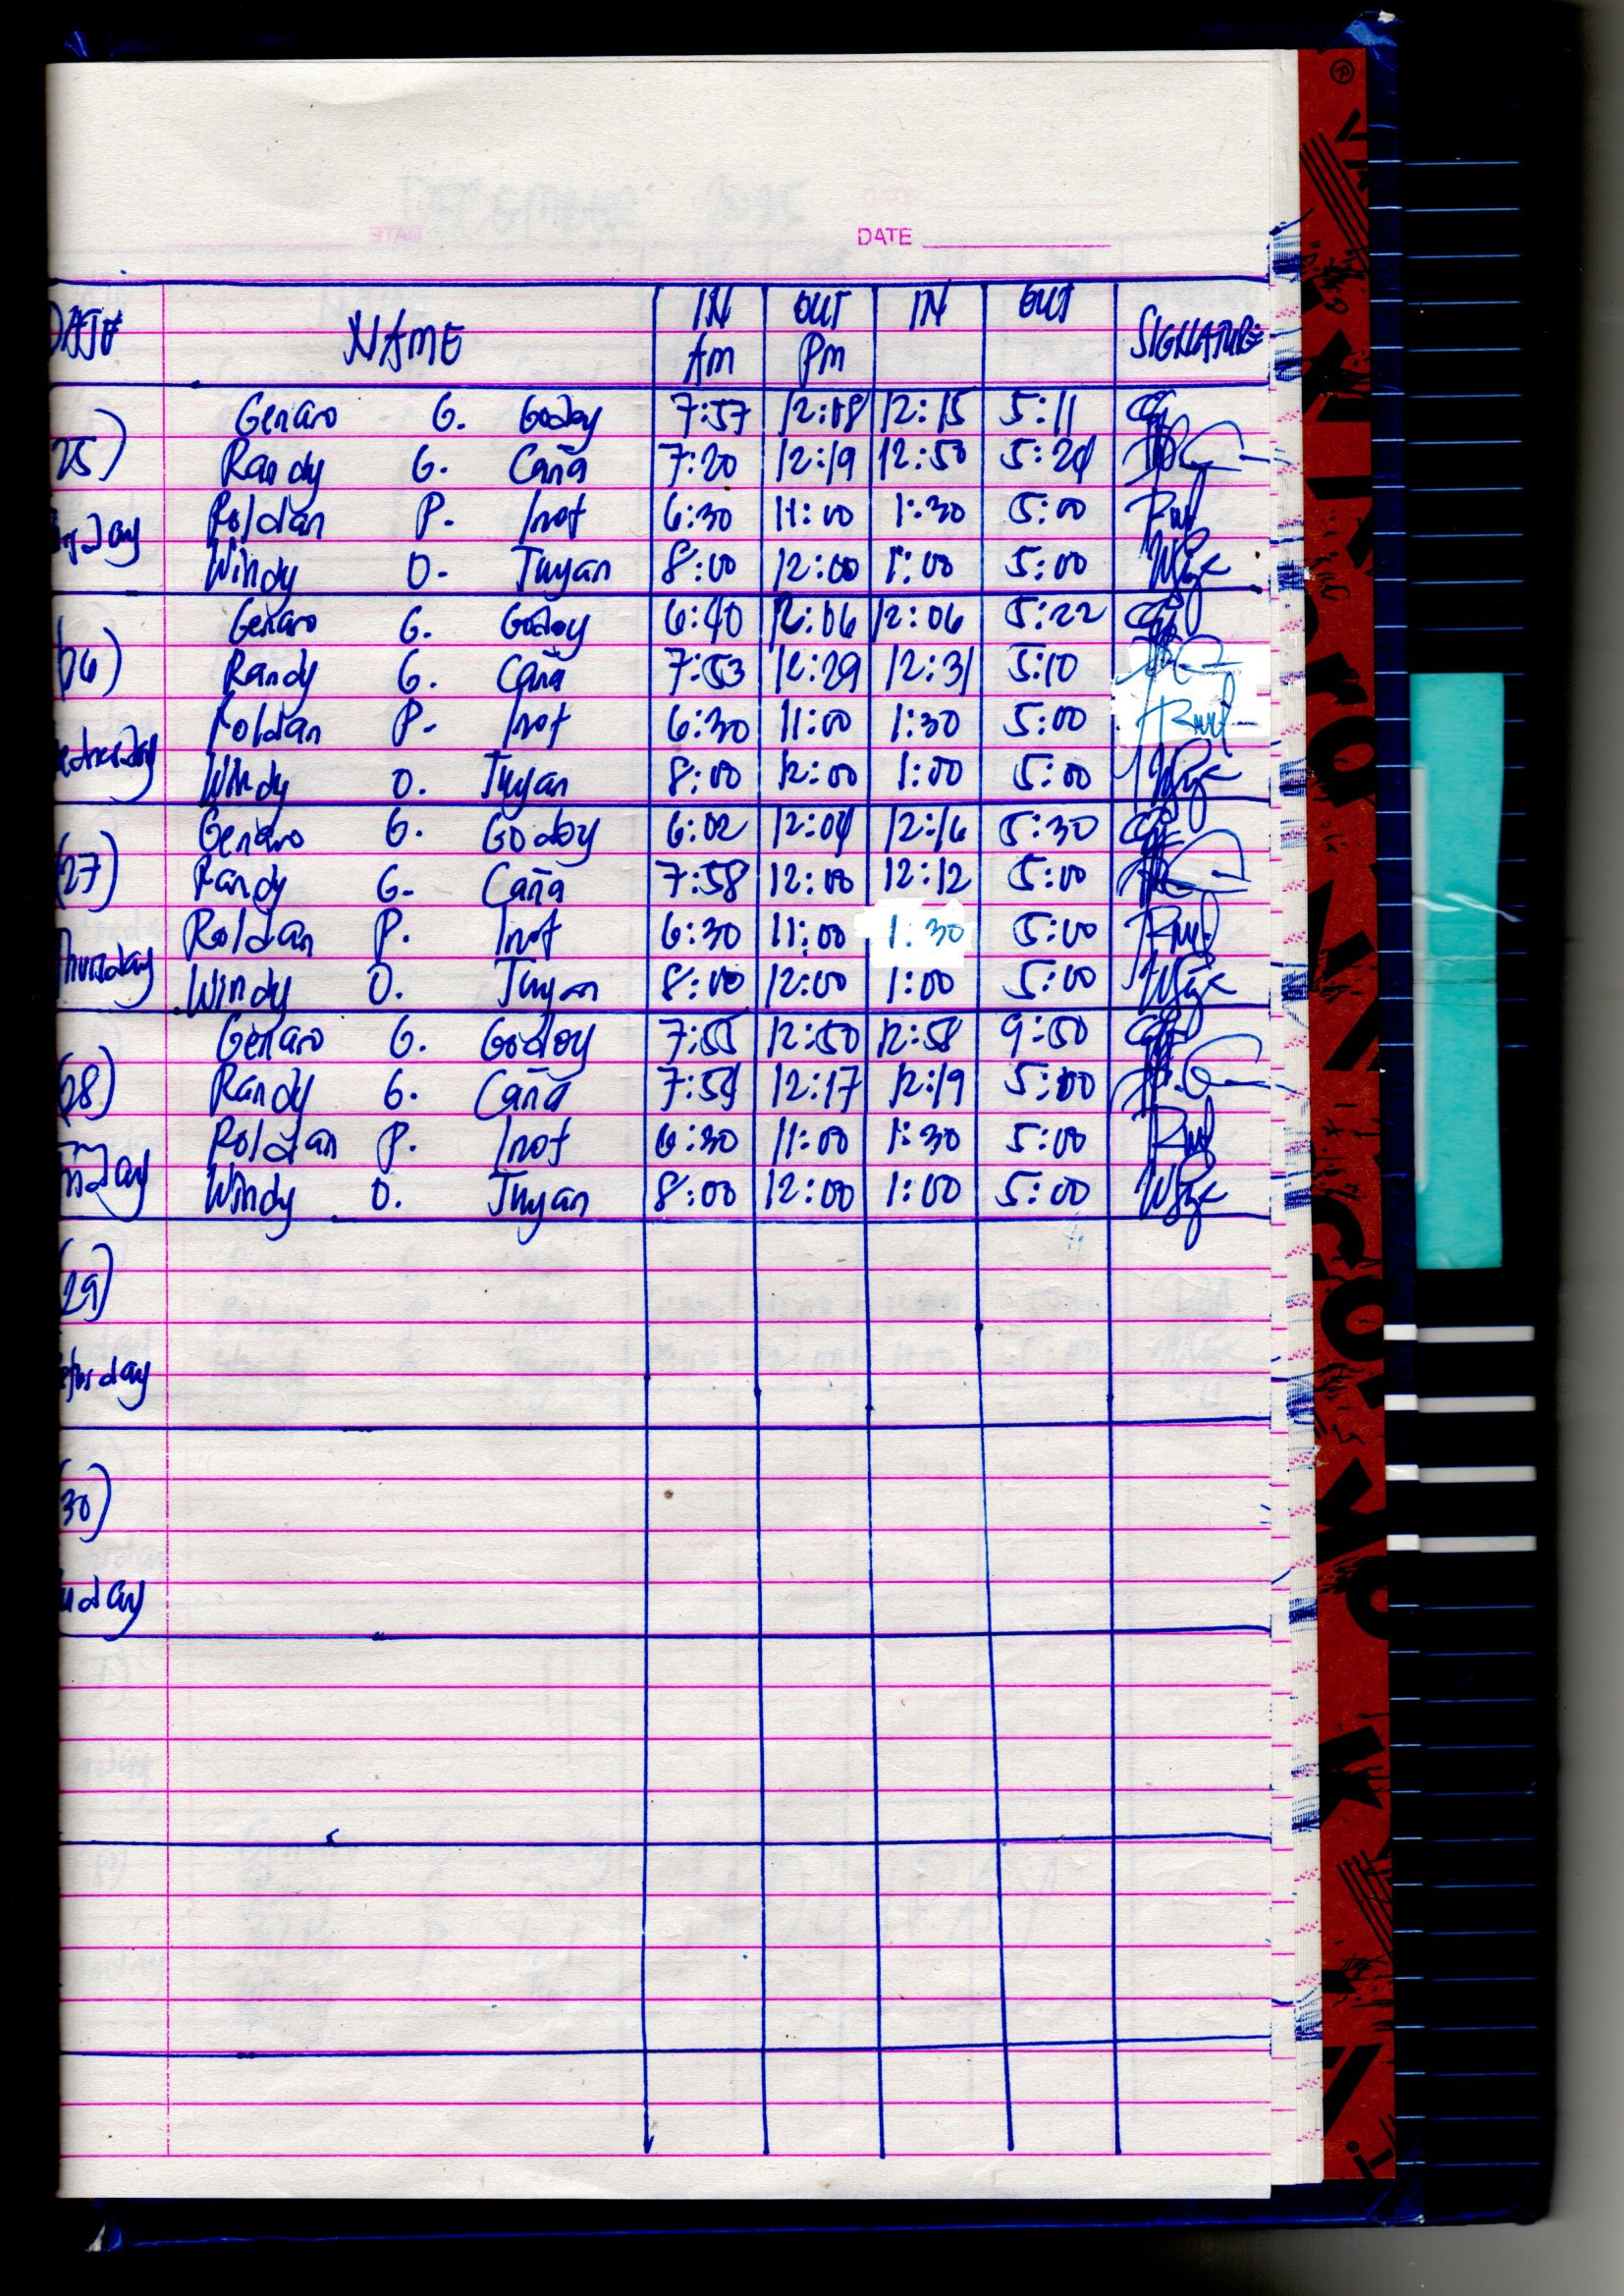 DATE
DATE NAME IN OUT IN OUT SIGNATURE
AM PM
Genaro G. Godoy 7:57 12:08 12:15 5:11
25) Randy G. Caña 7:20 12:19 12:50 5:24
Roldan P. Inot 6:30 11:00 1:30 5:00
Windy O. Tuyan 8:00 12:00 1:00 5:00
Genaro G. Godoy 6:40 12:06 12:06 5:22
26) Randy G. Caña 7:53 12:29 12:31 5:10
Roldan P. Inot 6:30 11:00 1:30 5:00
ednesday Windy O. Tuyan 8:00 12:00 1:00 5:00
Genaro G. Godoy 6:02 12:04 12:16 5:30
(27) Randy G. Caña 7:58 12:00 12:12 5:00
Roldan P. Inot 6:30 11:00 1:30 5:00
Thursday Windy O. Tuyan 8:00 12:00 1:00 5:00
Genaro G. Godoy 7:55 12:50 12:58 9:50
(28) Randy G. Caña 7:59 12:17 12:19 5:00
Roldan P. Inot 6:30 11:00 1:30 5:00
riday Windy O. Tuyan 8:00 12:00 1:00 5:00
(29)
aturday
30)
unday